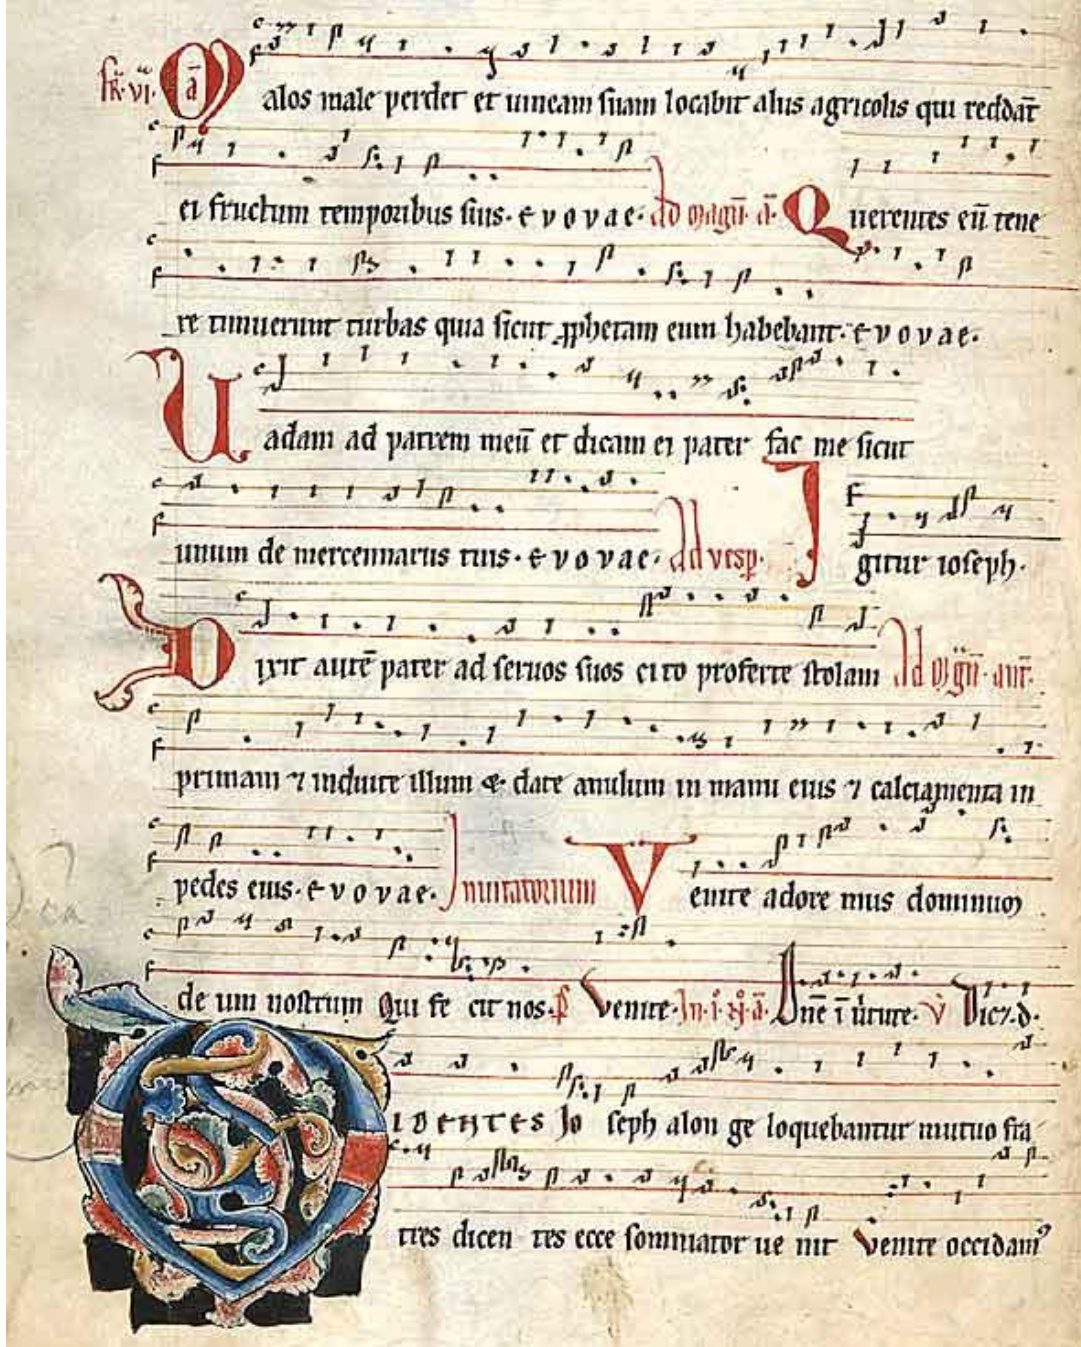 Malos male perdet et uineam suam locabit aliis agricolis qui reddāt
ei fructum temporibus suis. e v o v a e. ad magn̄ ā. Querentes eū tene
re timuerunt turbas quia sicut ꝓphetam eum habebant. e v o v a e.
Uadam ad patrem meū et dicam ei pater fac me sicut
unum de mercennariis tuis. e v o v a e. Ad vesp. Igitur ioseph.
Dixit autē pater ad seruos suos cito proferte stolam Ad mgn̄ ant.
primam ⁊ induite illum & date anulum in manu eius ⁊ calciamenta in
pedes eius. e v o v a e. Inuitatorium Venite adore mus dominum
de um nostrum Qui fe cit nos. Venite.
VIDENTES Jo seph alon ge loquebantur mutuo fra
tres dicen tes ecce somniator ue nit Venite occidamꝰ